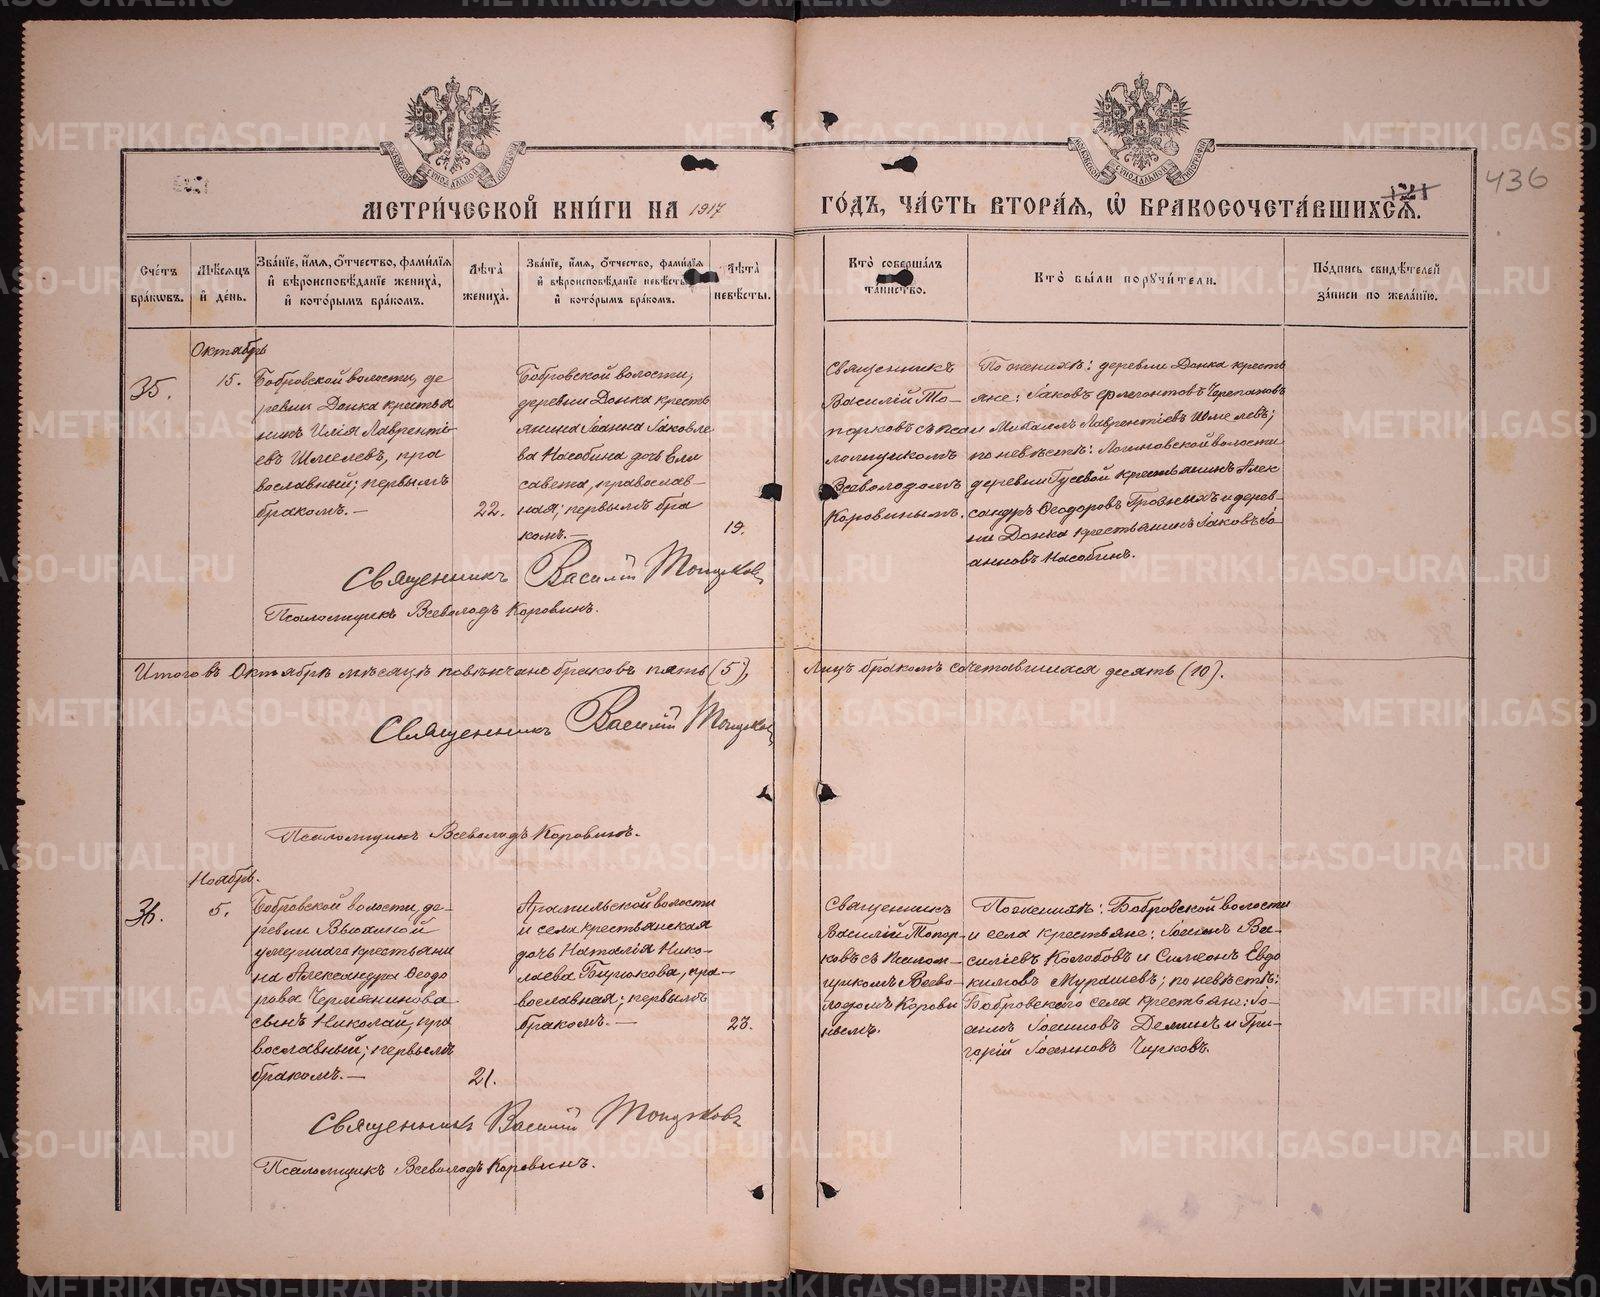 МЕТРИ́ЧЕСКОЙ КНИ́ГИ НА 1917
ГО́ДЪ, ЧА́СТЬ ВТОРА́Я, Ѽ БРАКОСОЧЕТА́ВШИХСѦ.
436
Сче́тъ бра́кѡвъ.
Мѣ́сяцъ и́ де́нь.
Зва́нїе, и́мя, о́тчество, фами́лїя и́ вѣроисповѣ́данїе жениха̀, и́ кото́рымъ бра́комъ.
Лѣ́та жениха̀.
Зва́нїе, и́мя, о́тчество, фами́лїя и́ вѣроисповѣ́данїе невѣ́сты, и́ кото́рымъ бра́комъ.
Лѣ́та невѣ́сты.
Кто̀ соверша́лъ та́инство.
Кто̀ бы́ли поручи́тели.
По́дпись свидѣ́телей за́писи по жела́нїю.
Октябрь
35.
15.
Бобровской волости, де
ревни Донка крестья
нинъ Илія Лавренті
евъ Шмелевъ, пра
вославный; первымъ
бракомъ.—
22.
Бобровской волости,
деревни Донка кресть
янина Іоанна Іаковле
ва Насобина дочь Ели
савета, православ—
ная; первымъ бра
комъ.—
19.
Священникъ
Василій То—
порковъ съ пса
ломщикомъ
Всеволодомъ
Коровинымъ.
По женихѣ: деревни Донка кресть
яне: Іаковъ Флегонтовъ Черепановъ
и Михаилъ Лаврентіевъ Шмелевъ;
по невѣстѣ: Логиновской волости
деревни Гусевой крестьянинъ Алек
сандръ Ѳеодоровъ Грозныхъ и дерев—
ни Донка крестьянинъ Іаковъ Іо
анновъ Насобинъ.
Священникъ Василій Топорковъ
Псаломщикъ Всеволодъ Коровинъ.
Итого въ Октябрѣ мѣсяцѣ повѣнчано браковъ пять (5), лицъ бракомъ сочетавшихся десять (10).
Священникъ Василій Топорковъ
Псаломщикъ Всеволодъ Коровинъ.
Ноябрь.
36.
5.
Бобровской волости, де—
ревни
умершаго крестьяни
на Александра Ѳеодо
рова Чермянинова
сынъ Николай, пра
вославный; первымъ
бракомъ.—
21.
Арамильской волости
и села крестьянская
дочь Наталія Нико—
лаева Бирюкова, пра—
вославная; первымъ
бракомъ.—
23.
Священникъ
Василій Топор—
ковъ съ псалом—
щикомъ Всево—
лодомъ Корови
нымъ.
По женихѣ: Бобровской волости
и села крестьяне: Іоаннъ Ва—
силіевъ Колобовъ и Симеонъ Евдо
кимовъ Мурашевъ; по невѣстѣ:
Бобровскаго села крестьяне: Іо—
аннъ Іоанновъ Деминъ и Гри—
горій Іоанновъ Чирковъ.
Священникъ Василій Топорковъ
Псаломщикъ Всеволодъ Коровинъ.
METRIKI.GASO-URAL.RU